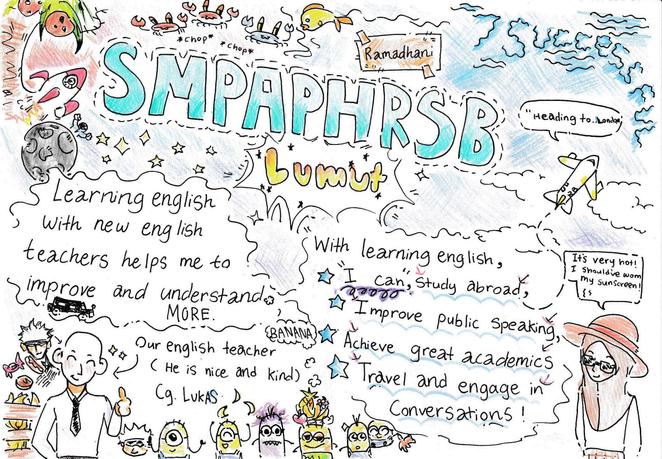 *chop*
*chop*
Ramadhani
7 Success
SMPAPHRSB
Lumut
"Heading to..London"
Learning english
with new english
teachers helps me to
improve and understand
MORE.
With learning english,
"I can", study abroad,
Improve public speaking,
Achieve great academics
Travel and engage in
Conversations!
It's very hot!
my sunscreen!
BANANA
Our english teacher
(He is nice and kind)
Cg. LUKAS